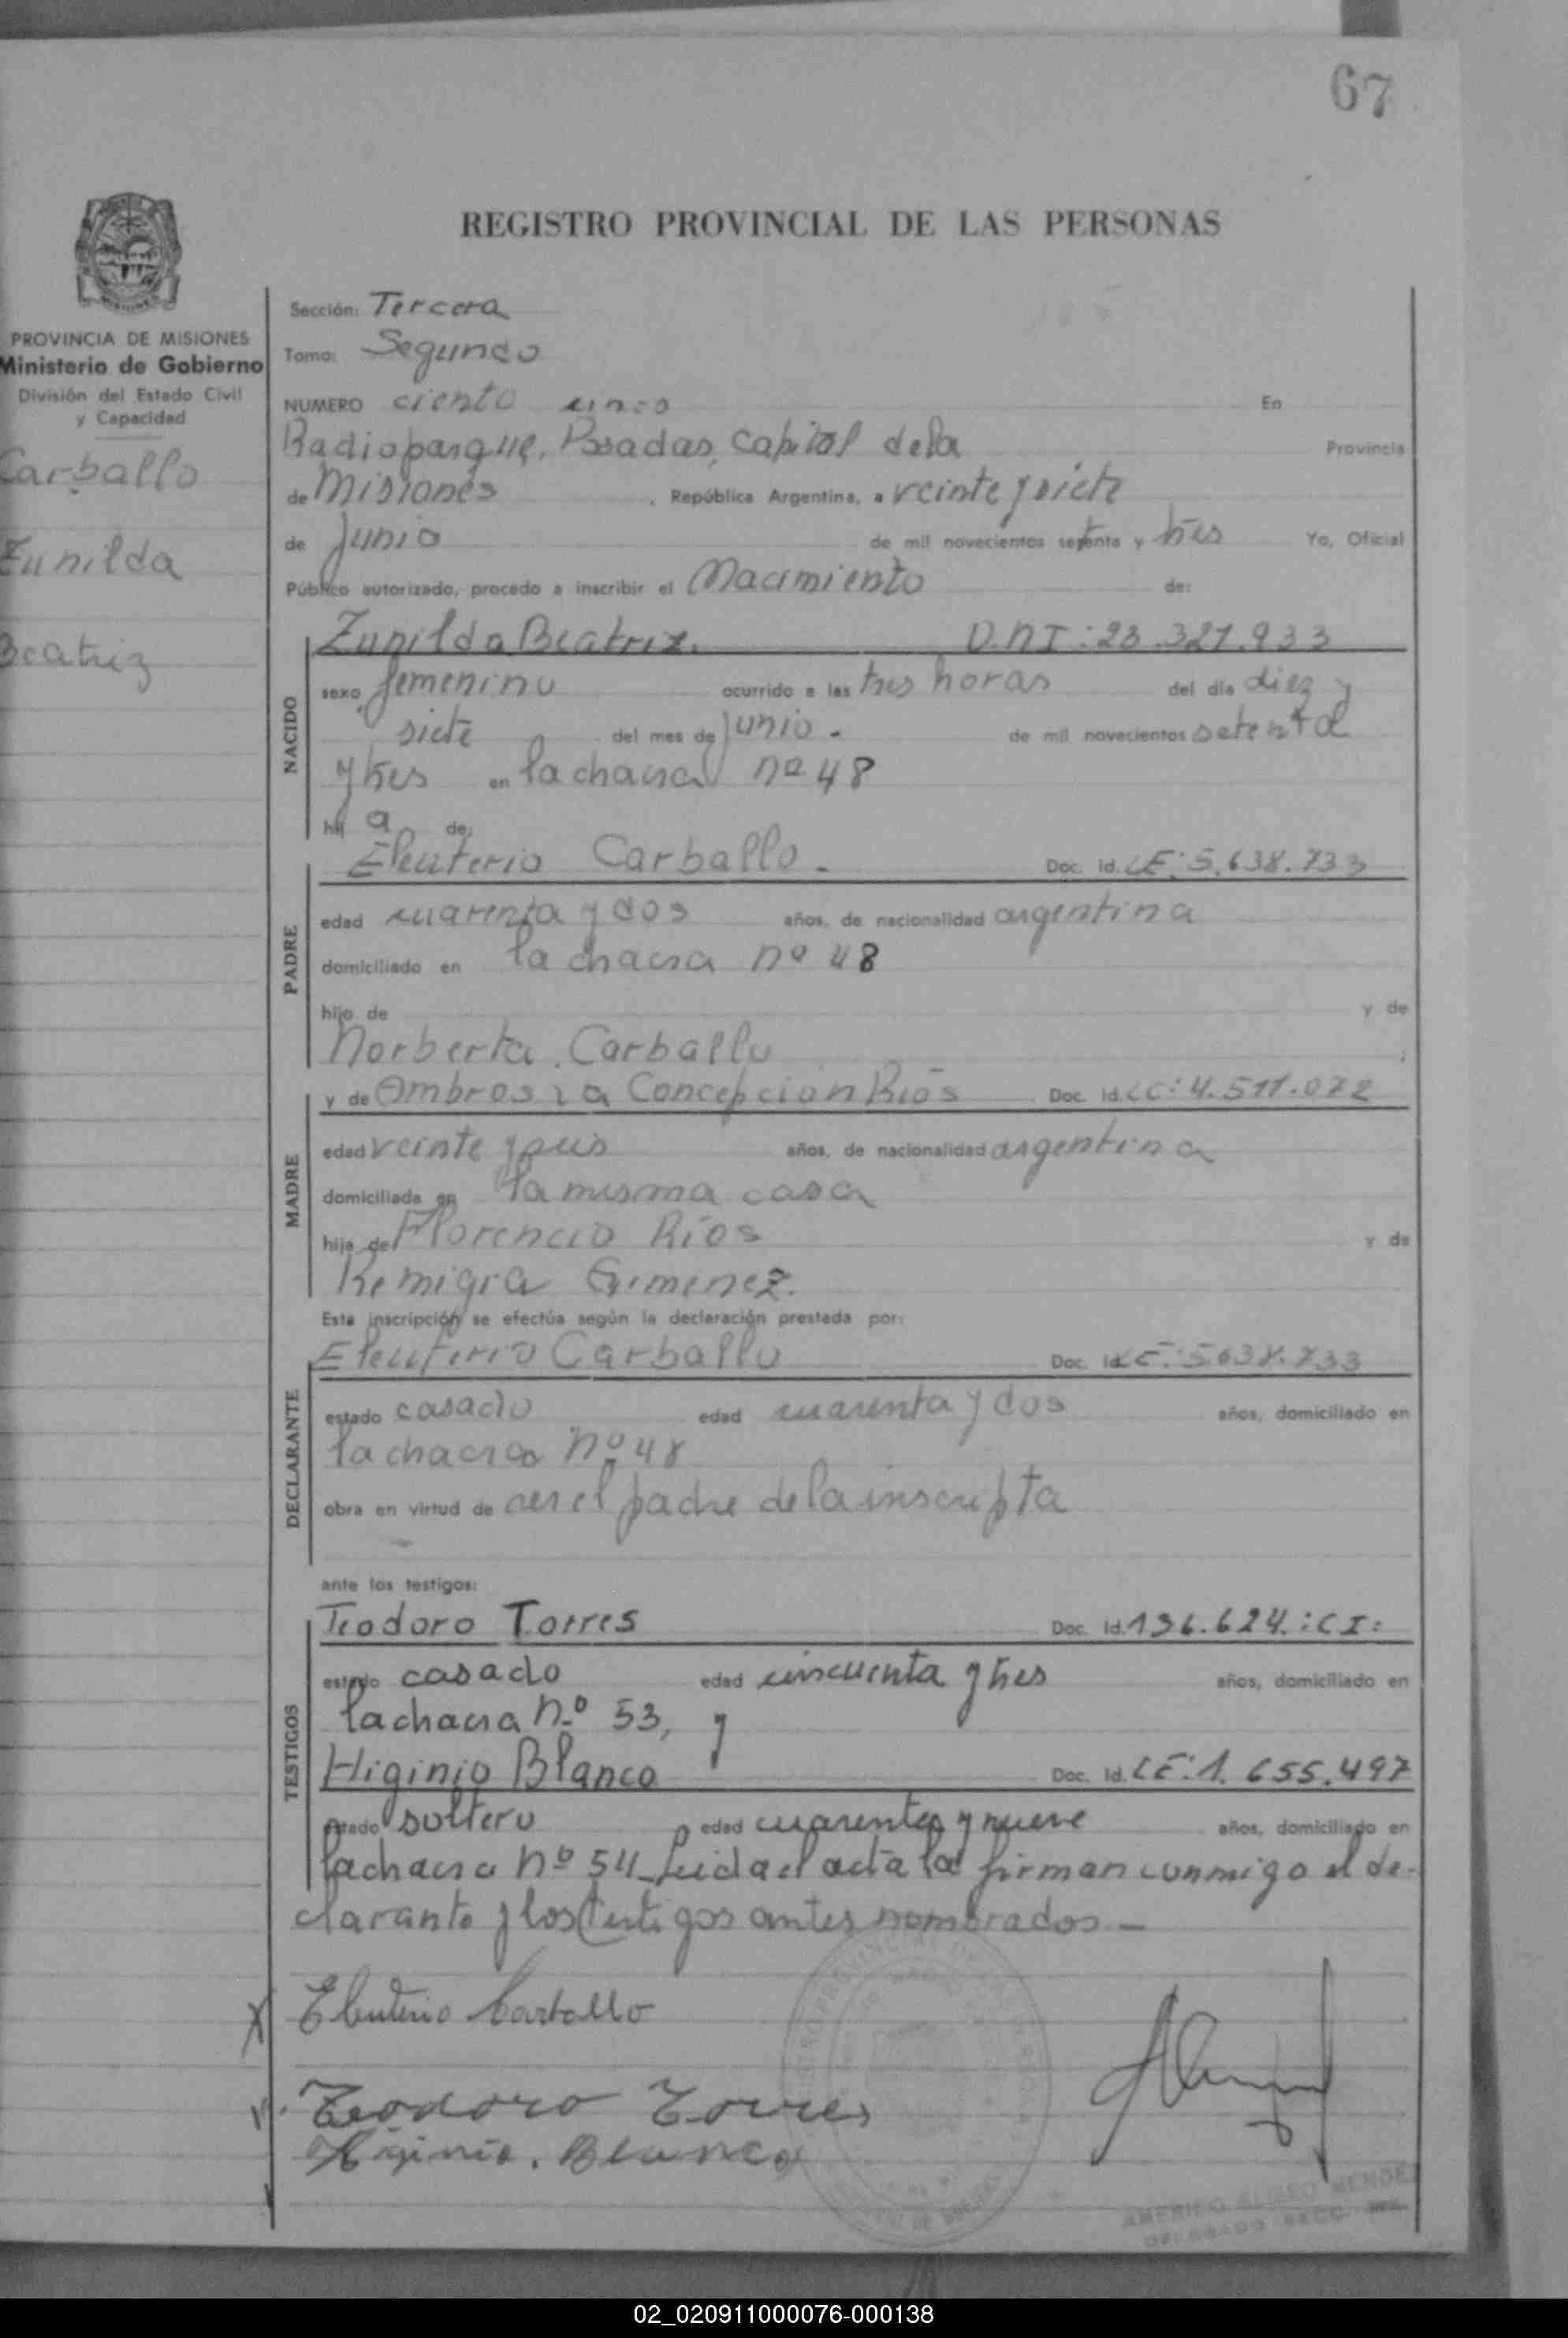 67
REGISTRO PROVINCIAL DE LAS PERSONAS
PROVINCIA DE MISIONES
Ministerio de Gobierno
División del Estado Civil
y Capacidad
Carballo
Zunilda
Beatriz
Sección: Tercera
Tomo: Segundo
NUMERO ciento cinco En
Radioparque, Posadas, Capital dela Provincia
de Misiones , República Argentina, a veinte y siete
de Junio de mil novecientos setenta y tres Yo, Oficial
Público autorizado, procedo a inscribir el Nacimiento de:
NACIDO
Zunilda Beatriz. D.N.I: 23.321.933
sexo femenino ocurrido a las tres horas del día diez y
siete del mes de Junio. de mil novecientos setenta
y tres en la chacra nº 48
hij a de:
PADRE
Eleuterio Carballo. Doc. Id. LE: 5.638.733
edad cuarenta y dos años, de nacionalidad argentina
domiciliado en la chacra nº 48
hijo de y de
Norberta Carballo ;
MADRE
y de Ambrosia Concepción Ríos Doc. Id. LC: 4.511.072
edad veinte y seis años, de nacionalidad argentina
domiciliada en la misma casa
hija de Florencio Ríos y de
Remigia Gimenez.
Esta inscripción se efectúa según la declaración prestada por:
DECLARANTE
Eleuterio Carballo Doc. Id. LE: 5.638.733
estado casado edad cuarenta y dos años, domiciliado en
la chacra nº 48
obra en virtud de ser el padre de la inscripta
ante los testigos:
TESTIGOS
Teodoro Torres Doc. Id. 136.624.:CI:
estado casado edad cincuenta y tres años, domiciliado en
la chacra nº 53, y
Higinio Blanco Doc. Id. LE: 1.655.497
estado soltero edad cuarenta y nueve años, domiciliado en
la chacra nº 54_ Leida el acta la firman conmigo el de-
clarante y los testigos antes nombrados_
Eleuterio Carballo
Teodoro Torres
Higinio. Blanco
AMERICO ELISEO MENDEZ
DELEGADO SECC.
02_020911000076-000138